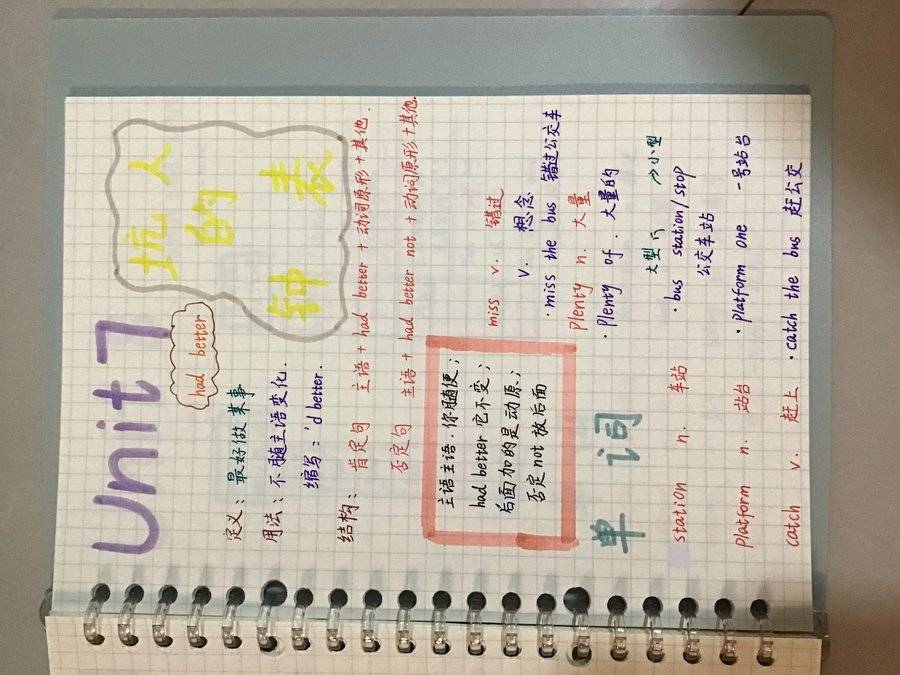 Unit 7
坑人
的
钟表
had better
定义：最好做某事
用法：不随主语变化.
缩写：'d better.
结构：肯定句 主语 + had better + 动词原形 + 其他.
否定句 主语 + had better not + 动词原形 + 其他.
主语主语.你随便；
had better 它不变；
后面加的是动原；
否定 not 放后面
单词
miss v. 错过
v. 想念
·miss the bus 错过公交车
plenty n. 大量
·plenty of . 大量的
station n. 车站
大型 小型
·bus station/stop
公交车站
Platform n. 站台
·Platform One 一号站台
catch v. 赶上
·catch the bus 赶公交